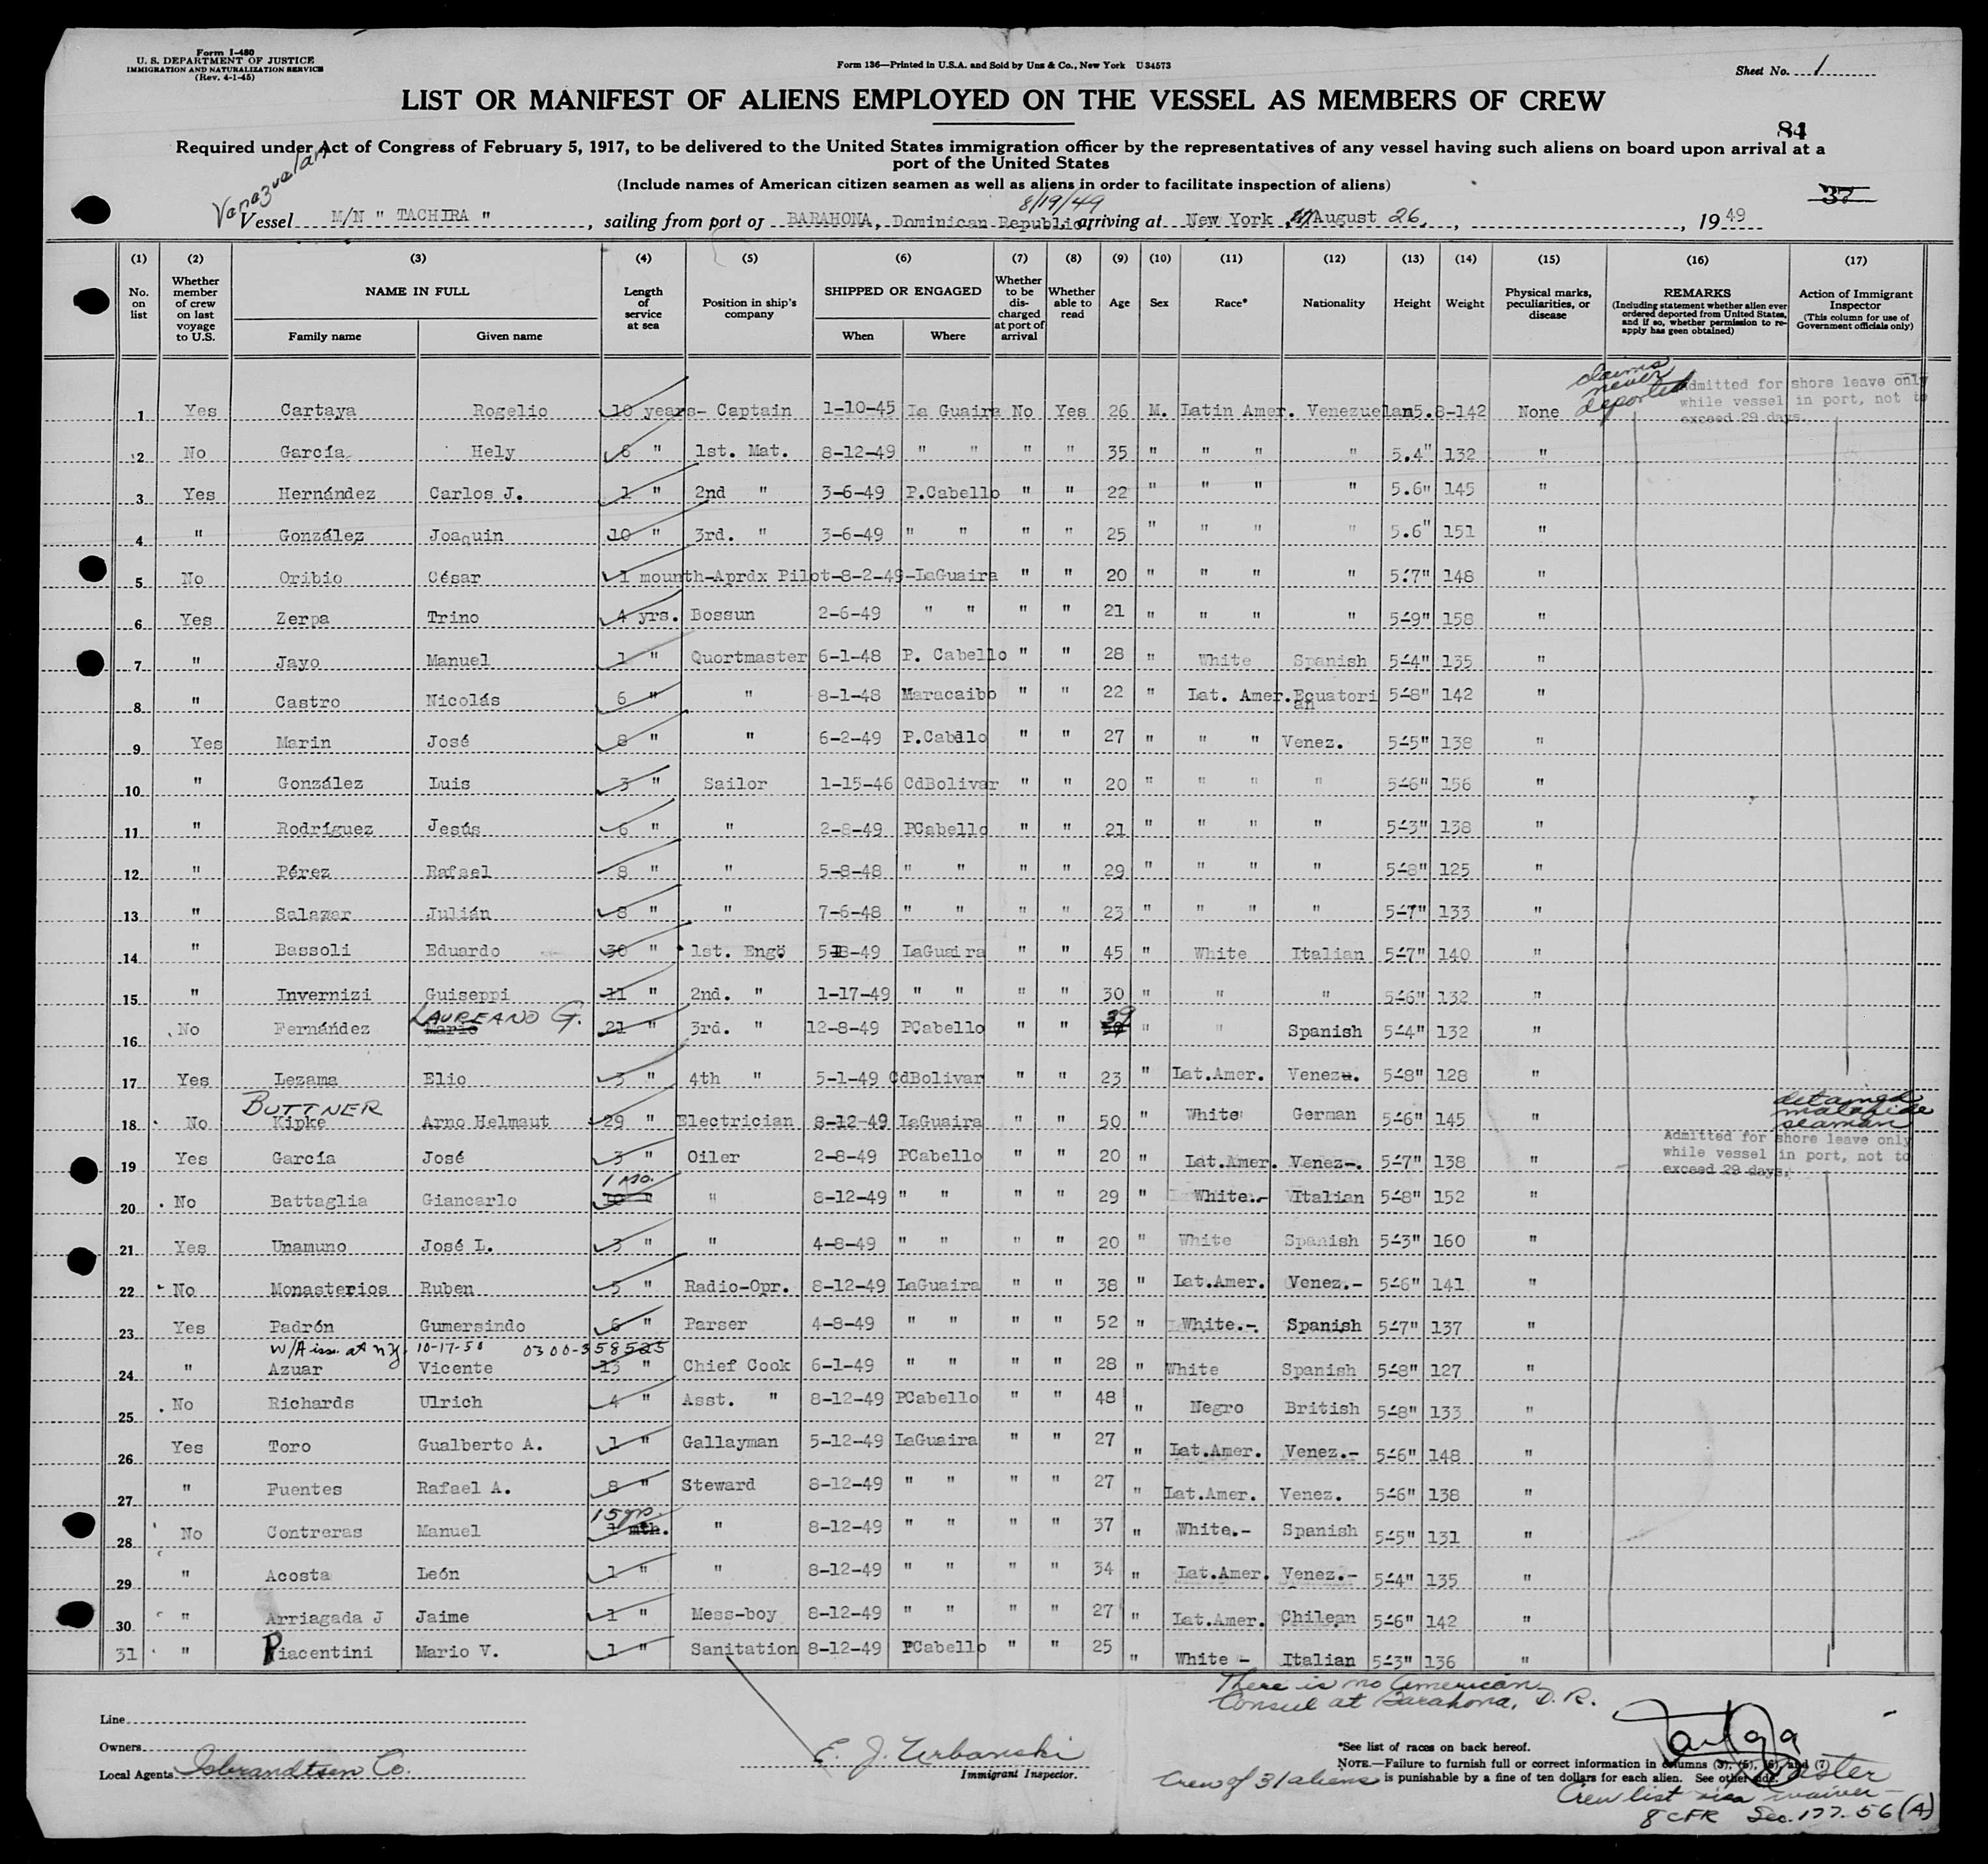 Form I-480
U. S. DEPARTMENT OF JUSTICE
IMMIGRATION AND NATURALIZATION SERVICE
(Rev. 4-1-45)
Form 136—Printed in U.S.A. and Sold by Unz & Co., New York U34573
Sheet No. 1
LIST OR MANIFEST OF ALIENS EMPLOYED ON THE VESSEL AS MEMBERS OF CREW
84
Required under Act of Congress of February 5, 1917, to be delivered to the United States immigration officer by the representatives of any vessel having such aliens on board upon arrival at a
port of the United States
(Include names of American citizen seamen as well as aliens in order to facilitate inspection of aliens)
37
Venezuelan
8/19/49
Vessel M/N " TACHIRA " , sailing from port of BARAHONA, Dominican Republic, arriving at New York August 26, , 1949
(1) (2) (3) (4) (5) (6) (7) (8) (9) (10) (11) (12) (13) (14) (15) (16) (17)
No. on list
Whether member of crew on last voyage to U.S.
NAME IN FULL
Family name Given name
Length of service at sea
Position in ship's company
SHIPPED OR ENGAGED
When Where
Whether to be discharged at port of arrival
Whether able to read
Age Sex Race* Nationality Height Weight
Physical marks, peculiarities, or disease
REMARKS
(Including statement whether alien ever ordered deported from United States, and if so, whether permission to re-apply has geen obtained)
Action of Immigrant Inspector
(This column for use of Government officials only)
claims never deported
Admitted for shore leave only
while vessel in port, not to
exceed 29 days.
1 Yes Cartaya Rogelio 10 years- Captain 1-10-45 La Guaira No Yes 26 M. Latin Amer. Venezuelan 5.8-142 None
2 No García Hely 6 " 1st. Mat. 8-12-49 " " " " 35 " " " " 5.4" 132 "
3 Yes Hernández Carlos J. 1 " 2nd " 3-6-49 P.Cabello " " 22 " " " " 5.6" 145 "
4 " González Joaquin 10 " 3rd. " 3-6-49 " " " " 25 " " " " 5.6" 151 "
5 No Oribio César 1 mounth-Aprdx Pilot-8-2-49-LaGuaira " " 20 " " " " 5.7" 148 "
6 Yes Zerpa Trino 4 yrs. Bossun 2-6-49 " " " " 21 " " " " 5-9" 158 "
7 " Jayo Manuel 1 " Quortmaster 6-1-48 P. Cabello " " 28 " White Spanish 5-4" 135 "
8 " Castro Nicolás 6 " " 8-1-48 Maracaibo " " 22 " Lat. Amer. Ecuatorian 5-8" 142 "
9 Yes Marin José 8 " " 6-2-49 P.Cabllo " " 27 " " " Venez. 5-5" 138 "
10 " González Luis 3 " Sailor 1-15-46 CdBolivar " " 20 " " " " 5-6" 156 "
11 " Rodríguez Jesús 6 " " 2-8-49 PCabello " " 21 " " " " 5-3" 138 "
12 " Pérez Rafael 8 " " 5-8-48 " " " " 29 " " " " 5-8" 125 "
13 " Salazar Julián 8 " " 7-6-48 " " " " 23 " " " " 5-7" 133 "
14 " Bassoli Eduardo 30 " 1st. Engö -49 LaGuaira " " 45 " White Italian 5-7" 140 "
15 " Invernizi Guiseppi 11 " 2nd. " 1-17-49 " " " " 30 " " " 5-6" 132 "
LAUREANO G.
16 No Fernández Mario 21 " 3rd. " 12-8-49 PCabello " " 39 " " Spanish 5-4" 132 "
17 Yes Lezama Elio 3 " 4th " 5-1-49 CdBolivar " " 23 " Lat.Amer. Venezu. 5-8" 128 "
BUTTNER
18 No Kipke Arno Helmaut 29 " Electrician 8-12-49 LaGuaira " " 50 " White German 5-6" 145 " detained malafide seaman
Admitted for shore leave only
while vessel in port, not to
exceed 29 days.
19 Yes García José 3 " Oiler 2-8-49 PCabello " " 20 " Lat.Amer. Venez-. 5-7" 138 "
1 mo.
20 No Battaglia Giancarlo 10 " " 8-12-49 " " " " 29 " White.- Italian 5-8" 152 "
21 Yes Unamuno José L. 3 " " 4-8-49 " " " " 20 " White Spanish 5-3" 160 "
22 No Monasterios Ruben 5 " Radio-Opr. 8-12-49 LaGuaira " " 38 " Lat.Amer. Venez.- 5-6" 141 "
23 Yes Padrón Gumersindo 6 " Parser 4-8-49 " " " " 52 " White.-. Spanish 5-7" 137 "
W/A iss. at NY. 10-17-50 0300-358525
24 " Azuar Vicente 13 " Chief Cook 6-1-49 " " " " 28 " White Spanish 5-8" 127 "
25 No Richards Ulrich 4 " Asst. " 8-12-49 PCabello " " 48 " Negro British 5-8" 133 "
26 Yes Toro Gualberto A. 1 " Gallayman 5-12-49 LaGuaira " " 27 " Lat.Amer. Venez.- 5-6" 148 "
27 " Fuentes Rafael A. 8 " Steward 8-12-49 " " " " 27 " Lat.Amer. Venez. 5-6" 138 "
15 yrs.
28 No Contreras Manuel 1 mth. " 8-12-49 " " " " 37 " White.- Spanish 5-5" 131 "
29 " Acosta León 1 " " 8-12-49 " " " " 34 " Lat.Amer. Venez.- 5-4" 135 "
30 " Arriagada J Jaime 1 " Mess-boy 8-12-49 " " " " 27 " Lat.Amer. Chilean 5-6" 142 "
31 " Piacentini Mario V. 1 " Sanitation 8-12-49 PCabello " " 25 " White - Italian 5-3" 136 "
There is no American
Consul at Barahona, D. R.
Line
Owners
Local Agents Isbrandtsen Co.
E. J. Urbanski
Immigrant Inspector.
*See list of races on back hereof.
NOTE.—Failure to furnish full or correct information in columns (3), (5), (6), and (7)
is punishable by a fine of ten dollars for each alien. See other side.
Master
Crew of 31 aliens
Crew list visa waiver
8 CFR Sec. 177.56 (A)